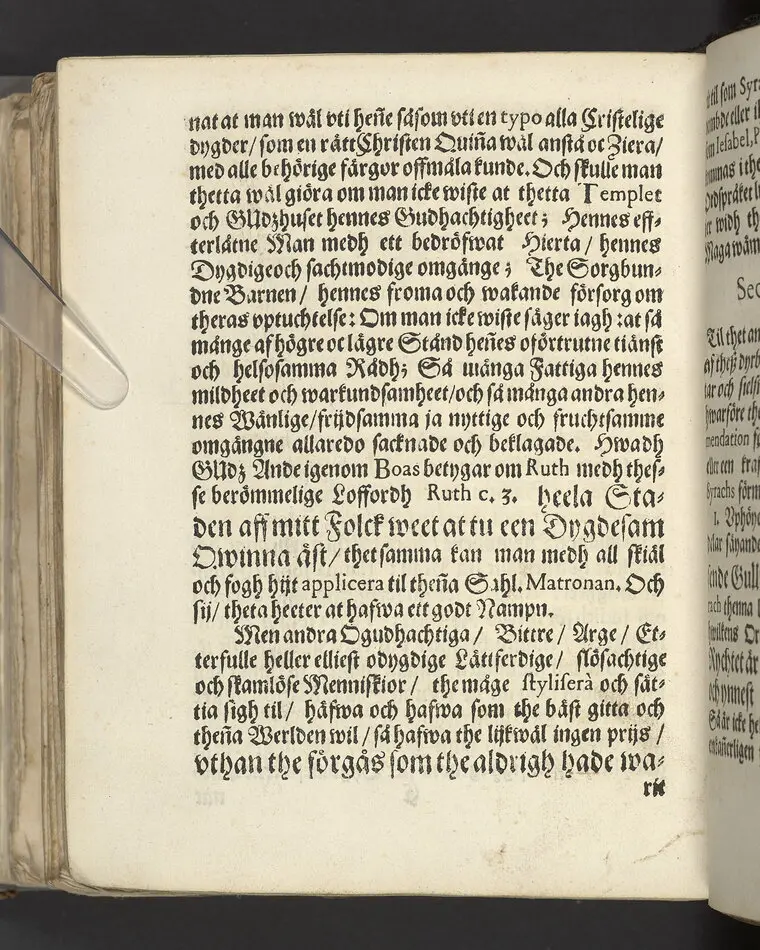 nat at man wäl vti heñe såsom vti en typo alla Cristelige
dygder/ som en rätt Christen Quiña wäl anstå oc Ziera/
med alle behörige färgor offmåla kunde. Och skulle man
thetta wäl giöra om man icke wiste at thetta Templet
och GUdzhuset hennes Gudhachtigheet; Hennes eff-
terlåtne Man medh ett bedröfwat Hierta/ hennes
Dygdige och sachtmodige omgänge; The Sorgbun-
dne Barnen/ hennes froma och wakande försorg om
theras vptuchtelse: Om man icke wiste säger iagh :at så
månge af högre oc lägre Stånd heñes oförtrutne tiänst
och helsosamma Rådh; Så många Fattiga hennes
mildheet och warkundsamheet/och så många andra hen-
nes Wänlige/frijdsamma ja nyttige och fruchtsamme
omgängne allaredo sacknade och beklagade. Hwadh
GUdz Ande igenom Boas betygar om Ruth medh thes-
se berömmelige Loffordh Ruth c. 3. heela Sta-
den aff mitt Folck weet at tu een Dygdesam
Qwinna äst/ thet samma kan man medh all skiäl
och fogh hijt applicera til theña Sahl. Matronan. Och
sij/ theta heeter at hafwa ett godt Nampn.
Men andra Ogudhachtiga/ Bittre/ Arge/ Et-
terfulle heller elliest odygdige Lättferdige/ slösachtige
och skamlöse Menniskior/ the måge styliserà och sät-
tia sigh til/ häfwa och hafwa som the bäst gitta och
theña Werlden wil/ så hafwa the lijkwäl ingen prijs/
vthan the förgås som the aldrigh hade wa-
rit
til som Syra
Sec
Til thet an
I. Vphöye